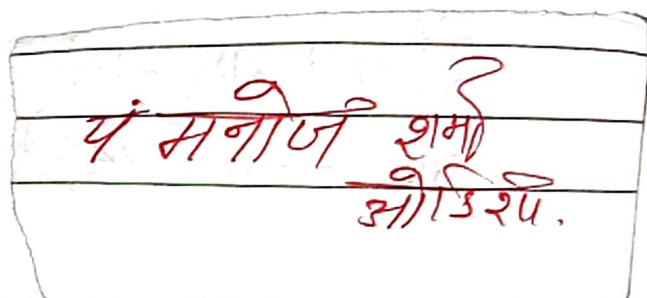 पं मनोज शर्मा
ओडिशा.